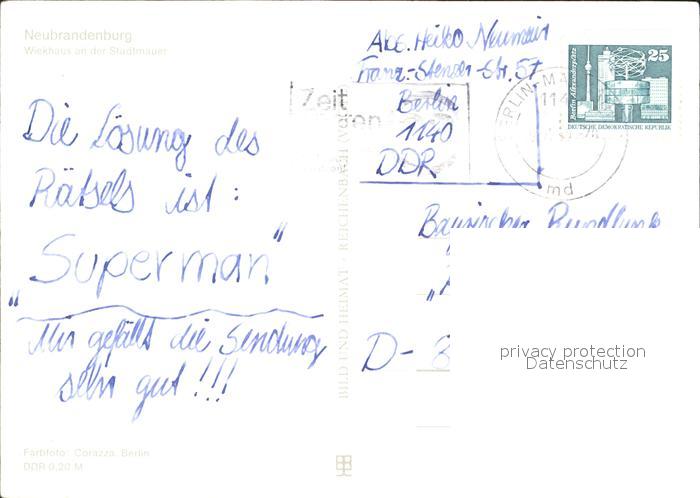 Neubrandenburg
Wiekhaus an der Stadtmauer
Die Lösung des
Rätsels ist:
„Superman"
Mir gefällt die Sendung
sehr gut!!!
Farbfoto: Corazza, Berlin
DDR 0,20 M
BILD UND HEIMAT · REICHENBACH (VOGTL
Abs. Heiko Neumann
Franz-Stenzer-Str. 57
Berlin
1140
DDR
Zeit
BERLIN-MA
11
md
25
Berlin-Alexanderplatz
DEUTSCHE DEMOKRATISCHE REPUBLIK
Bayrischer Rundfunk
D-8
privacy protection
Datenschutz